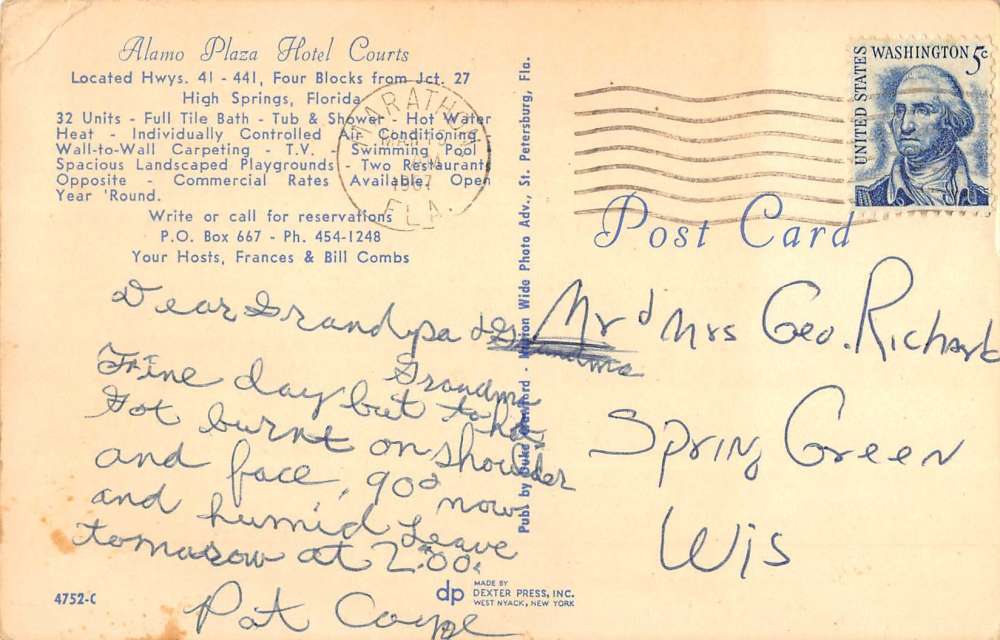 Alamo Plaza Hotel Courts
Located Hwys. 41 - 441, Four Blocks from Jct. 27
High Springs, Florida
32 Units - Full Tile Bath - Tub & Shower - Hot Water
Heat - Individually Controlled Air Conditioning
Wall-to-Wall Carpeting - T.V. - Swimming Pool
Spacious Landscaped Playgrounds - Two Restaurants
Opposite - Commercial Rates Available. Open
Year 'Round.
Write or call for reservations
P.O. Box 667 - Ph. 454-1248
Your Hosts, Frances & Bill Combs
MARATHON
MAR
1967
FLA.
Dear Grandpa & Grandma
Grandma
Fine day but to hot
Got burnt on shoulder
and face, 90° now
and humid Leave
tomarow at 2:00.
Pat
4752-C
Publ by Duke Crawford - Wide Photo Adv., St. Petersburg, Fla.
dp
MADE BY
DEXTER PRESS, INC.
WEST NYACK, NEW YORK
UNITED STATES
WASHINGTON 5c
Post Card
Mr & Mrs Geo. Richard
Spring Green
Wis